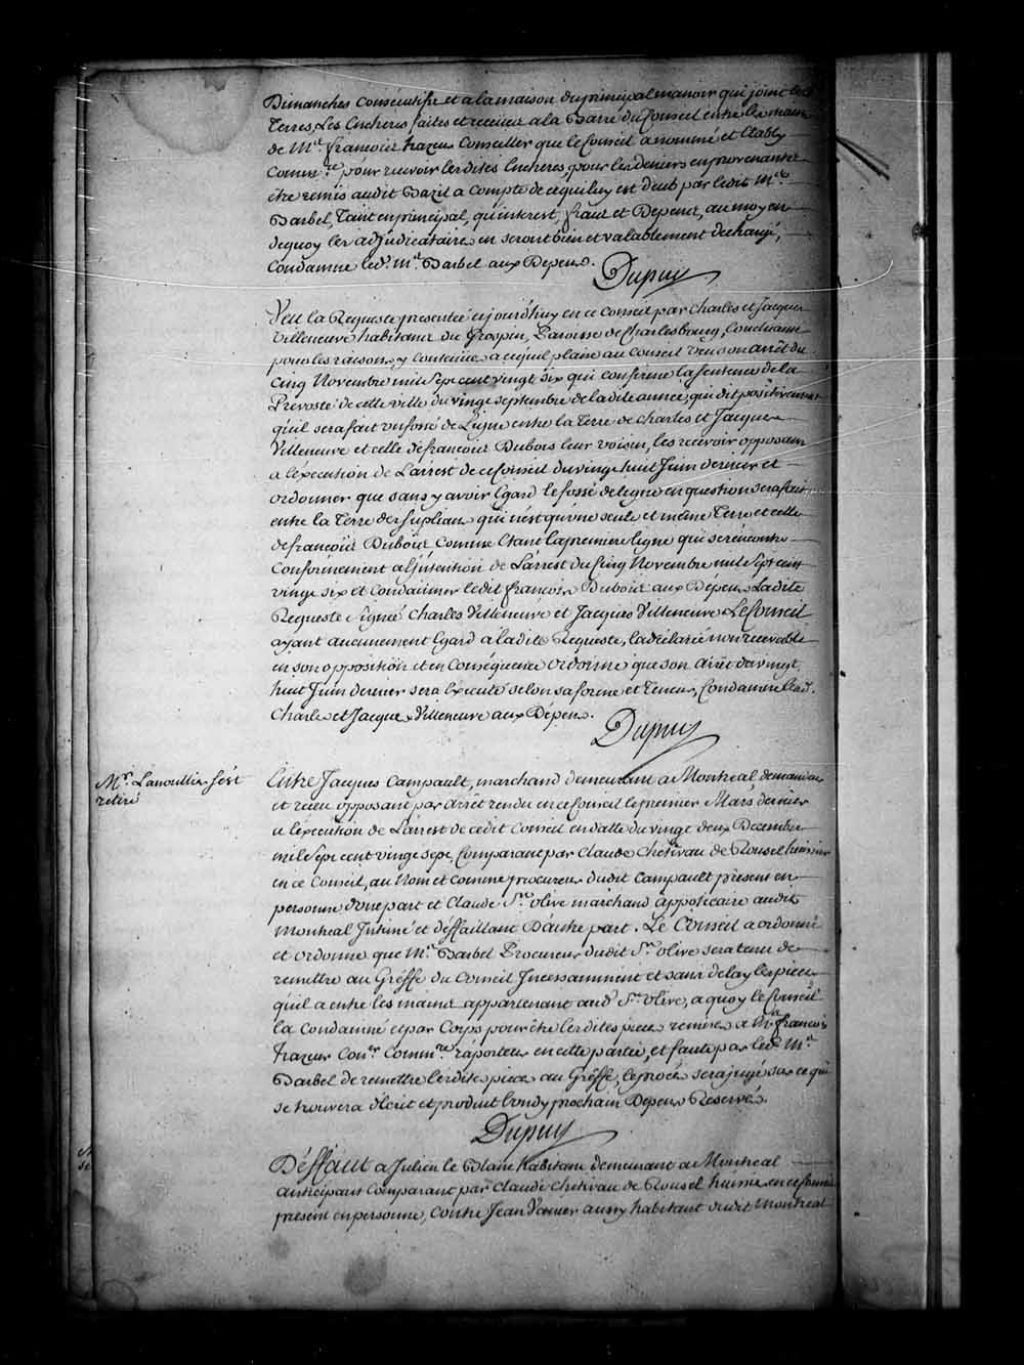 Dimanches Consecutifs et a la maison du principal manoir qui joint les
Terres, Les Encheres faites et receues a la Barre du Conseil entre les mains
de Mre. françois hazeur Conseiller que le Conseil a nommé et Etably
Commre. pour recevoir lesdites Encheres, pour les deniers en provenants
être remis audit Bazil a Compte de ce qui luy est deub par ledit Me.
Barbel, Tant en principal, qu'interest, fraix et Depens, au moyen
de quoy les adjudicataires en seront bien et valablement dechargé,
Condamne led. Me. Barbel aux Depens.
Dupuy
Veu la Requeste presentée cejourd'huy en ce Conseil par Charles et Jacques
Villeneuve habitans du Grospin, Paroisse de Charlesbourg, Concluante
pour les raisons y contenües a ce qu'il plaise au Conseil veu son arrêt du
Cinq Novembre mil Sept cent vingt six qui confirme la sentence de la
Prevosté de cette ville du vingt septembre de ladite année, qui dit positivement
qu'il sera fait un fossé de Ligne entre la Terre de Charles et Jacques
Villeneuve et celle de françois Dubois leur voisin, les recevoir opposans
a l'execution de L'arrest de ce Conseil du vingt huit Juin dernier et
ordonner que sans y avoir Egard le fossé de ligne en question sera fait
entre la Terre des suplians qui n'est qu'une seule et même Terre et celle
de françois Dubois comme Etant la premiere ligne qui se rencontre
Conformement a l'intention de L'arrest du Cinq Novembre mil Sept cent
vingt six et condamner ledit françois Dubois aux Dépens Ladite
Requeste Signée Charles Villeneuve et Jacques Villeneuve Le Conseil
ayant aucunement Egard a ladite Requeste, la declaré non recevable
en son opposition et en Conséquence ordonne que son arrêt du vingt
huit Juin dernier sera Executé selon sa forme et teneur, Condamne lesd.
Charles et Jacques Villeneuve aux Dépens.
Dupuy
Mr. Lanoullier s'est
retiré
Entre Jacques Campault, marchand demeurant a Montreal demandeur
et receu opposant par arrêt rendu en ce Conseil le premier Mars dernier
a l'execution de L'arrest de cedit Conseil en datte du vingt deux Decembre
mil Sept cent vingt sept, Comparant par Claude Chetivau de Rousel huissier
en ce Conseil, au Nom et comme procureur dudit Campault present en
personne d'une part et Claude St. olive marchand apoticaire audit
Montreal Intimé et deffaillant D'autre part. Le Conseil a ordonné
et ordonne que Me. Barbel Procureur dudit St. olive sera tenu de
remettre au Greffe du Conseil Incessamment et sans delay les pieces
qu'il a entre les mains appartenant aud. St. olive, a quoy le Conseil
la Condamné et par Corps pour être lesdites pieces remises a Me. françois
hazeur Coner. Commre. raporteur en cette partie, et faute par led. Me.
Barbel de remettre lesdites pieces au Greffe, le procés sera jugé sur ce qui
se trouvera d'écrit et produit lundy prochain Depens Reservés.
Dupuy
Deffaut a Julien le Blanc habitant demeurant a Montreal
anticipant Comparant par Claude Chetivau de Rousel huissier en ce Conseil
present en personne, Contre Jean aussy habitant dudit Montreal